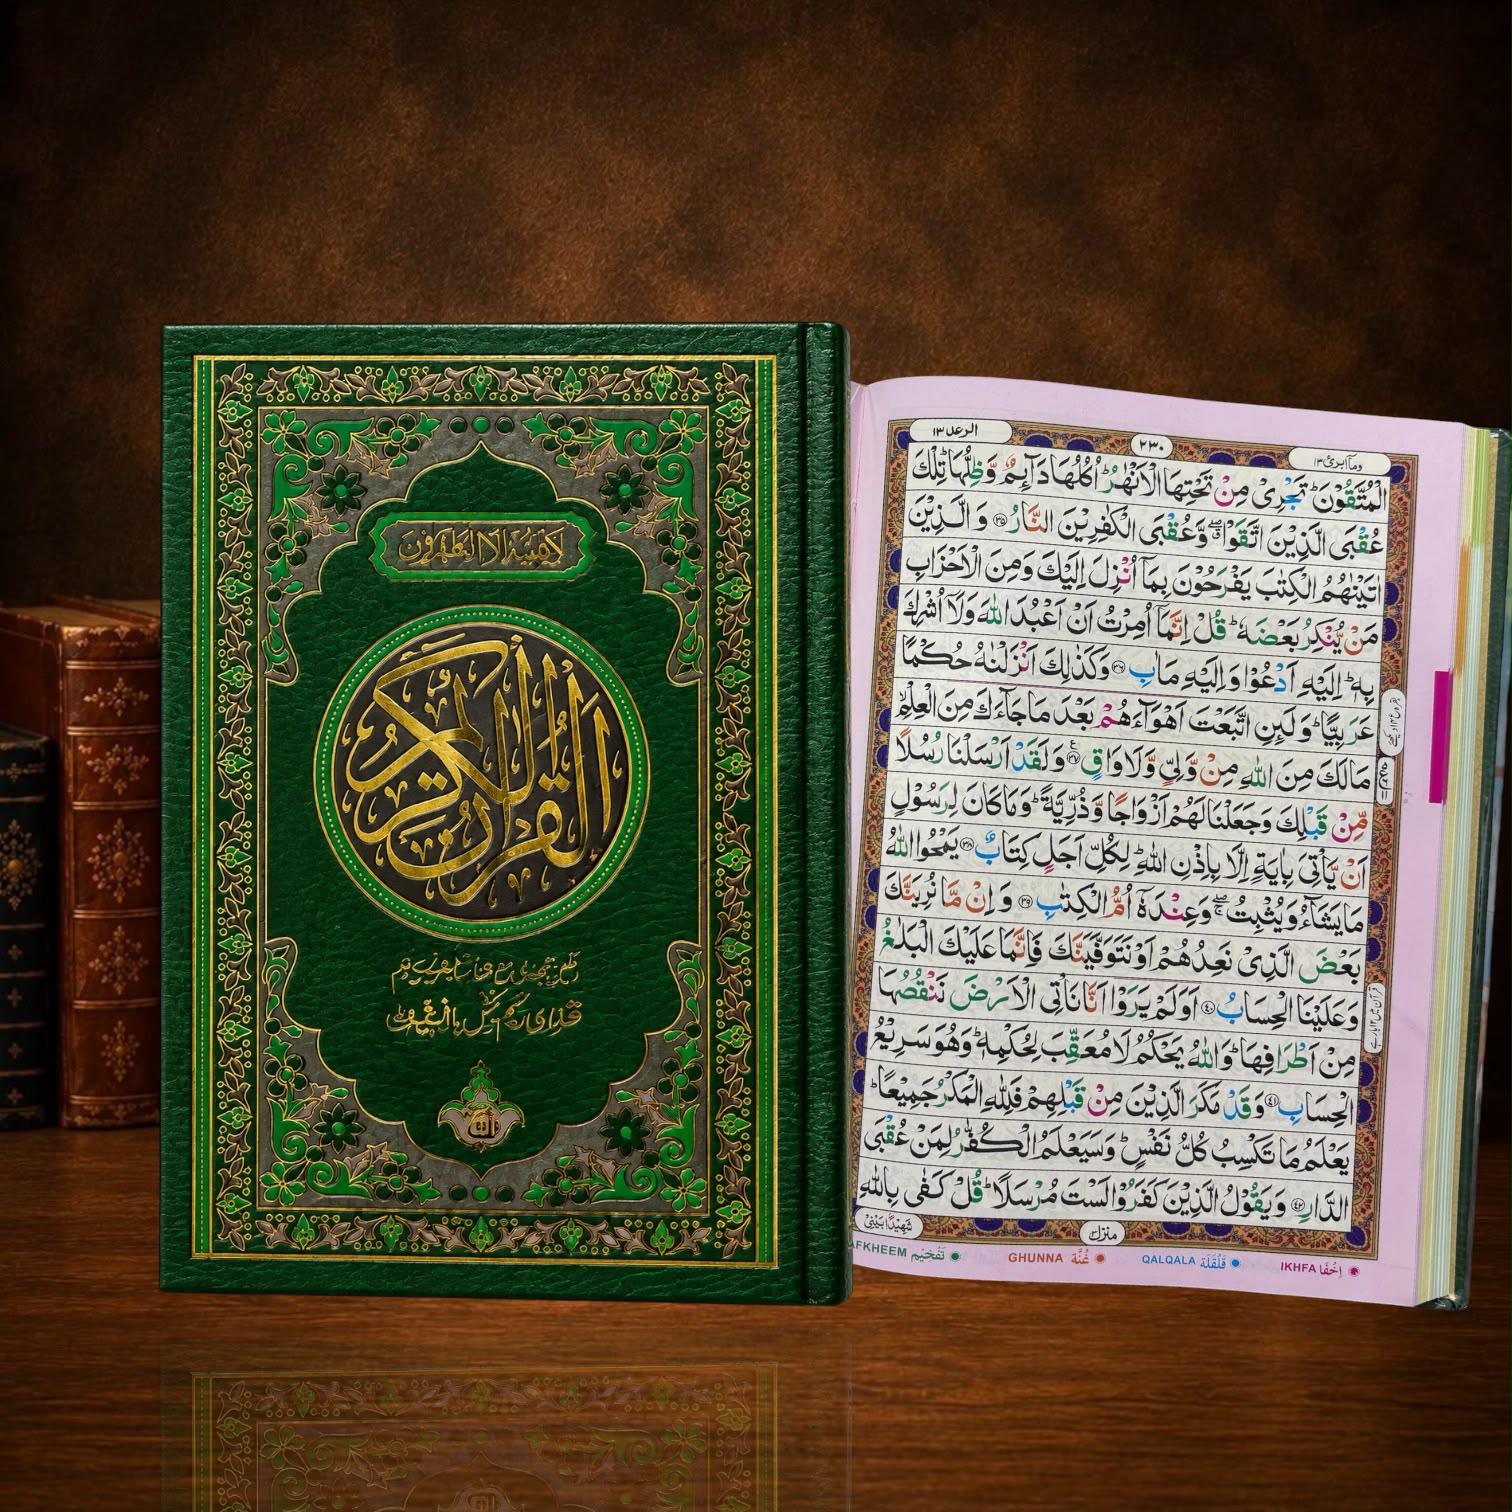 القرآن الكريم
الرعد ١٣
٢٣٠
وما ابرئ ١٣
الْمُتَّقُوْنَ ؕ تَجْرِیْ مِنْ تَحْتِهَا الْاَنْهٰرُ ؕ اُكُلُهَا دَآىِٕمٌ وَّ ظِلُّهَا ؕ تِلْكَ
عُقْبَی الَّذِیْنَ اتَّقَوْا ۖۗ وَّ عُقْبَی الْكٰفِرِیْنَ النَّارُ ﴿۳۵﴾ وَ الَّذِیْنَ
اٰتَیْنٰهُمُ الْكِتٰبَ یَفْرَحُوْنَ بِمَاۤ اُنْزِلَ اِلَیْكَ وَ مِنَ الْاَحْزَابِ
مَنْ یُّنْكِرُ بَعْضَهٗ ؕ قُلْ اِنَّمَاۤ اُمِرْتُ اَنْ اَعْبُدَ اللّٰهَ وَ لَاۤ اُشْرِكَ
بِهٖ ؕ اِلَیْهِ اَدْعُوْا وَ اِلَیْهِ مَاٰبِ ﴿۳۶﴾ وَ كَذٰلِكَ اَنْزَلْنٰهُ حُكْمًا
عَرَبِیًّا ؕ وَ لَىِٕنِ اتَّبَعْتَ اَهْوَآءَهُمْ بَعْدَ مَا جَآءَكَ مِنَ الْعِلْمِ ۙ
مَا لَكَ مِنَ اللّٰهِ مِنْ وَّلِیٍّ وَّ لَا وَاقٍ ﴿۳۷﴾ وَ لَقَدْ اَرْسَلْنَا رُسُلًا
مِّنْ قَبْلِكَ وَ جَعَلْنَا لَهُمْ اَزْوَاجًا وَّ ذُرِّیَّةً ؕ وَ مَا كَانَ لِرَسُوْلٍ
اَنْ یَّاْتِیَ بِاٰیَةٍ اِلَّا بِاِذْنِ اللّٰهِ ؕ لِكُلِّ اَجَلٍ كِتَابٌ ﴿۳۸﴾ یَمْحُوا اللّٰهُ
مَا یَشَآءُ وَ یُثْبِتُ ۖۚ وَ عِنْدَهٗۤ اُمُّ الْكِتٰبِ ﴿۳۹﴾ وَ اِنْ مَّا نُرِیَنَّكَ
بَعْضَ الَّذِیْ نَعِدُهُمْ اَوْ نَتَوَفَّیَنَّكَ فَاِنَّمَا عَلَیْكَ الْبَلٰغُ
وَ عَلَیْنَا الْحِسَابُ ﴿۴۰﴾ اَوَ لَمْ یَرَوْا اَنَّا نَاْتِی الْاَرْضَ نَنْقُصُهَا
مِنْ اَطْرَافِهَا ؕ وَ اللّٰهُ یَحْكُمُ لَا مُعَقِّبَ لِحُكْمِهٖ ؕ وَ هُوَ سَرِیْعُ
الْحِسَابِ ﴿۴۱﴾ وَ قَدْ مَكَرَ الَّذِیْنَ مِنْ قَبْلِهِمْ فَلِلّٰهِ الْمَكْرُ جَمِیْعًا ؕ
یَعْلَمُ مَا تَكْسِبُ كُلُّ نَفْسٍ ؕ وَ سَیَعْلَمُ الْكُفّٰرُ لِمَنْ عُقْبَی
الدَّارِ ﴿۴۲﴾ وَ یَقُوْلُ الَّذِیْنَ كَفَرُوْا لَسْتَ مُرْسَلًا ؕ قُلْ كَفٰی بِاللّٰهِ
شَهِیْدًۢا بَیْنِیْ
منزل ۳
AFKHEEM تَفْخِيْم
GHUNNA غُنَّة
QALQALA قَلْقَلَة
IKHFA اِخْفَا